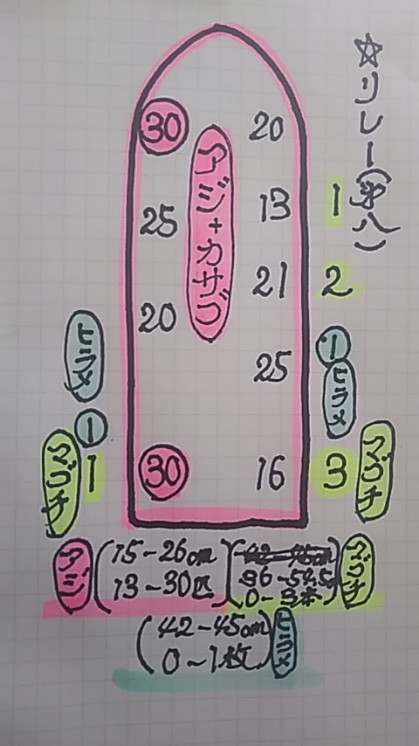 ☆リレー(第八)
30 20
アジ+カサゴ
13 1
25
21 2
20
ヒラメ
1
25
1
ヒラメ
マゴチ
1
30
16
3
マゴチ
アジ
15-26cm
13-30匹
マゴチ
0-3本
42-45cm
0~1枚
ヒラメ